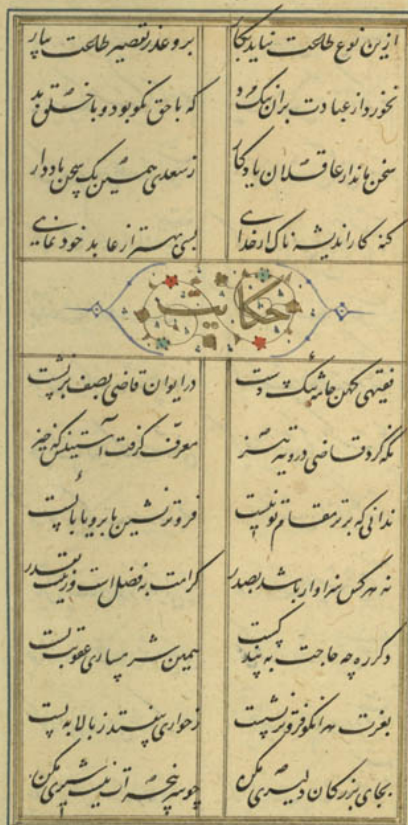 ازین نوع طاعت نیاید بکار برو عذر تقصیر طاعت بیار
نخورد از عبادت بر آن بیخرد که با حق نکو بود و با خلق بد
سخن ماند از عاقلان یادکار ز سعدی همین یک سخن یاد دار
کنه کار اندیشه ناک از خدای بسی بهتر از عابد خود نمای
حکایت
فقیهی کهن جامه تنک دست در ایوان قاضی بصف بر نشست
نکه کرد قاضی درو تیز تیز معرف کرفت آستینش که خیز
ندانی که برتر مقام تو نیست فروتر نشین یا برو یا بایست
نه هر کس سزاوار باشد بصدر کرامت به فضل است و رتبت بقدر
دکر ره چه حاجت به پند کست همین شرمساری عقوبت بست
بعزت هر آنکو فروتر نشست ز خواری نیفتد ز بالا به پست
بجای بزرکان دلیری مکن چو سر پنجه ات نیست شیری مکن